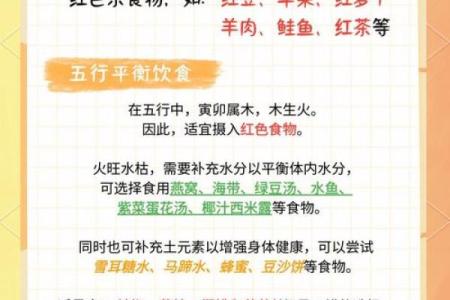 红色系食物，如：红豆、苹果、红萝卜
羊肉、鲑鱼、红茶等
五行平衡饮食
在五行中，寅卯属木，木生火。
因此，适宜摄入红色食物。
火旺水枯，需要补充水分以平衡体内水分，
可选择食用燕窝、海带、绿豆汤、水鱼、
紫菜蛋花汤、椰汁西米露等食物。
同时也可补充土元素以增强身体健康，可以尝试
雪耳糖水、马蹄水、蜂蜜、豆沙饼等食物。